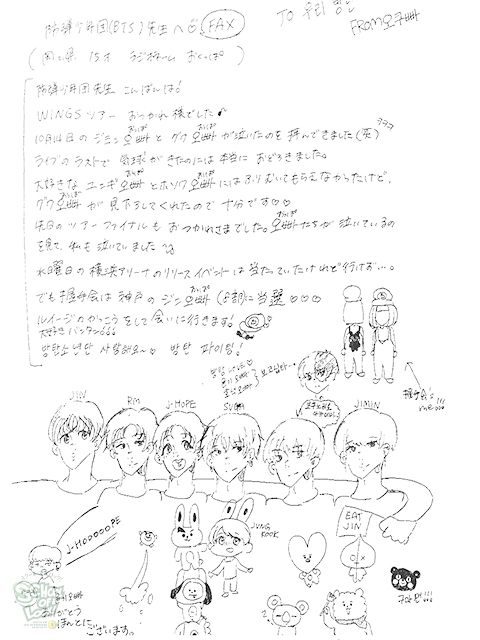 防弾少年団(BTS)先生へ♡ FAX
TO 우리 형들
FROM오쿠빠
(岡山県 15才 ラジオネーム おくっぱ)
防弾少年団先生 こんばんは!
WINGSツアー おつかれ様でした♪
10月14日のジミン오빠とグク오빠が泣いてたのを拝んできました(笑)
ライブのラストで 気球がきたのには本当に おどろきました。
大好きな ユンギ오빠とホソク오빠にはふりむいてもらえなかったけど、
グク오빠が 見下ろしてくれたので十分です♡♡
先日のツアーファイナルも おつかれさまでした。오빠たちが泣いているの
を見て、私も泣いていました
水曜日の横浜アリーナのリリースイベントは当たっていたけれど行けず…。
でも握手会は神戸のジン오빠 に当選 ♡♡♡
ルイージのかっこうをして会いに行きます!
大好きバンタン
방탄소년단 사랑해요~♡ 방탄 파이팅!
握手会
me
JIN
RM
J-HOPE
SUGA
V
JIMIN
J-HOOOOOPE
JUNG KOOK
EAT JIN
ありがとう
ほんとに
ございます。